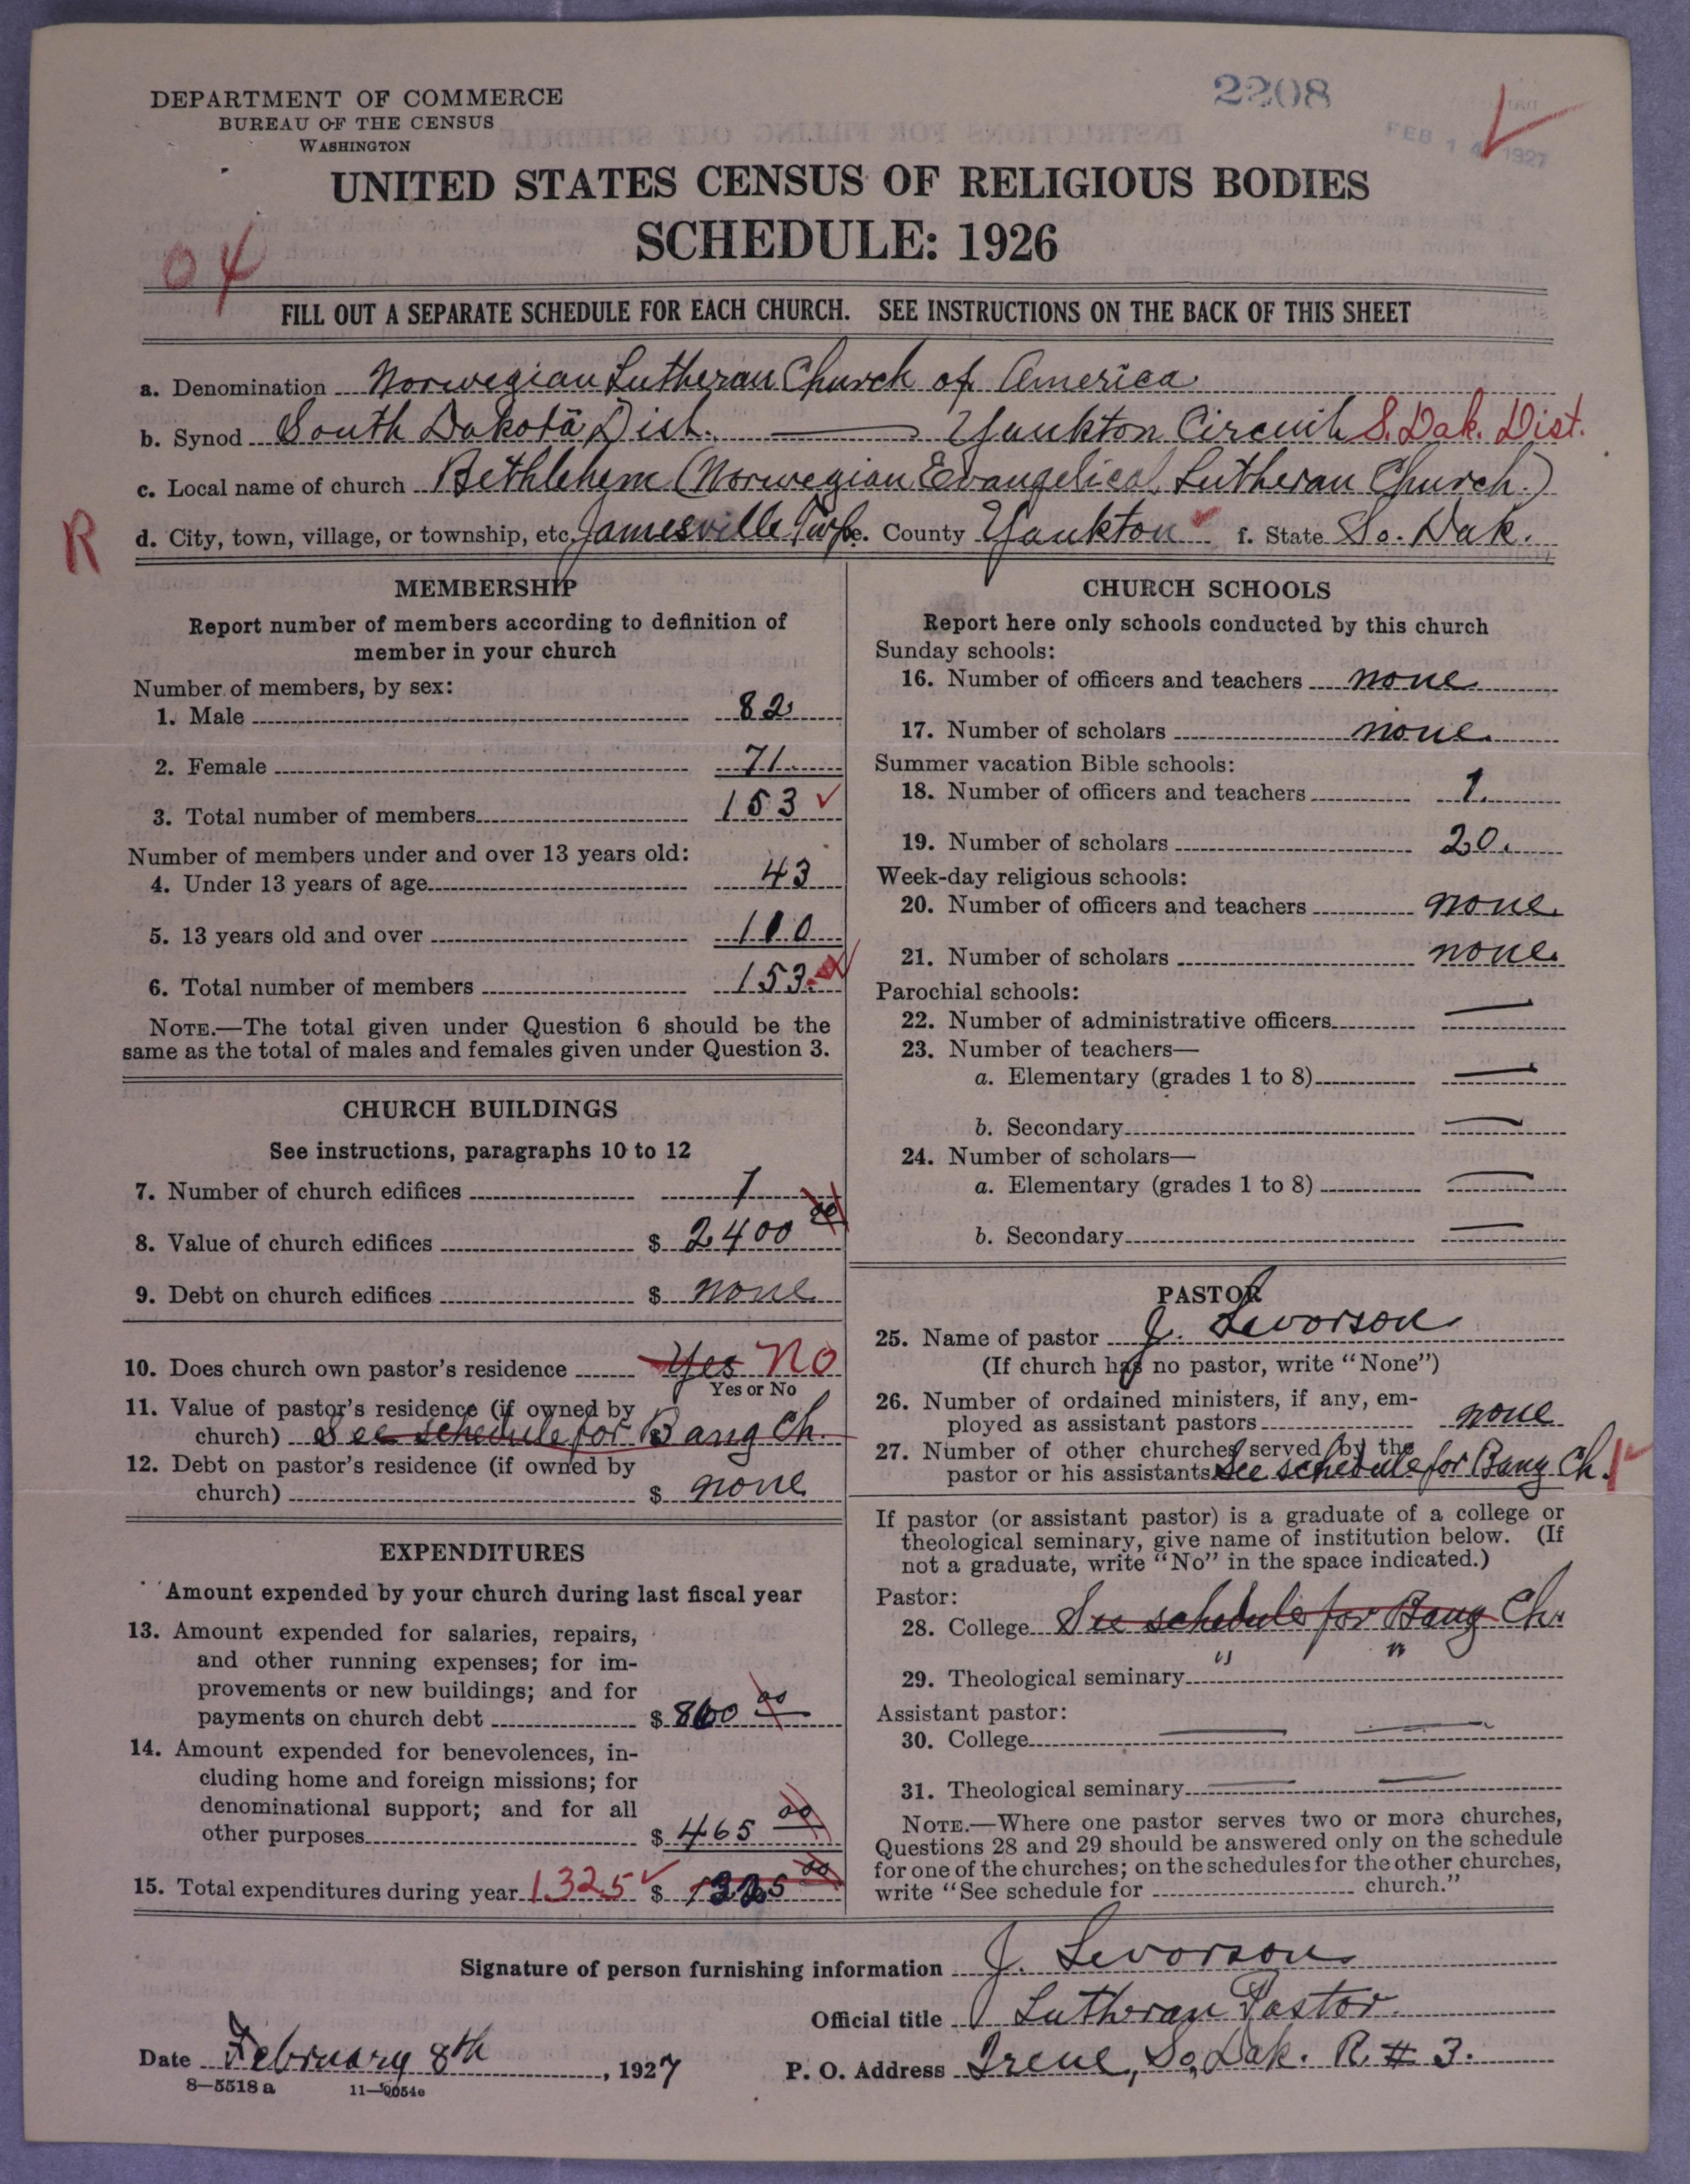 2208
DEPARTMENT OF COMMERCE
BUREAU OF THE CENSUS
WASHINGTON
FEB 14 1927
UNITED STATES CENSUS OF RELIGIOUS BODIES
SCHEDULE: 1926
04
FILL OUT A SEPARATE SCHEDULE FOR EACH CHURCH. SEE INSTRUCTIONS ON THE BACK OF THIS SHEET
a. Denomination Norwegian Lutheran Church of America
b. Synod South Dakota Dist. — Yankton Circuit S. Dak. Dist.
c. Local name of church Bethlehem (Norwegian Evangelical Lutheran Church.)
R
d. City, town, village, or township, etc. Jamesville Twp. e. County Yankton f. State So. Dak.
MEMBERSHIP
Report number of members according to definition of
member in your church
Number of members, by sex:
1. Male 82
2. Female 71
3. Total number of members 153 ✓
Number of members under and over 13 years old:
4. Under 13 years of age 43
5. 13 years old and over 110
6. Total number of members 153
NOTE.—The total given under Question 6 should be the
same as the total of males and females given under Question 3.
CHURCH BUILDINGS
See instructions, paragraphs 10 to 12
7. Number of church edifices 1
8. Value of church edifices $ 2400 00
9. Debt on church edifices $ none
10. Does church own pastor's residence Yes No
Yes or No
11. Value of pastor's residence (if owned by
church) See schedule for Bang Ch.
12. Debt on pastor's residence (if owned by
church) $ none
EXPENDITURES
Amount expended by your church during last fiscal year
13. Amount expended for salaries, repairs,
and other running expenses; for im-
provements or new buildings; and for
payments on church debt $ 860 00
14. Amount expended for benevolences, in-
cluding home and foreign missions; for
denominational support; and for all
other purposes $ 465 00
15. Total expenditures during year 1325 ✓ $ 1325 00
CHURCH SCHOOLS
Report here only schools conducted by this church
Sunday schools:
16. Number of officers and teachers none
17. Number of scholars none
Summer vacation Bible schools:
18. Number of officers and teachers 1.
19. Number of scholars 20.
Week-day religious schools:
20. Number of officers and teachers none.
21. Number of scholars none.
Parochial schools:
22. Number of administrative officers —
23. Number of teachers—
a. Elementary (grades 1 to 8) —
b. Secondary —
24. Number of scholars—
a. Elementary (grades 1 to 8) —
b. Secondary —
PASTOR
25. Name of pastor J. Levorson
(If church has no pastor, write "None")
26. Number of ordained ministers, if any, em-
ployed as assistant pastors none
27. Number of other churches served by the
pastor or his assistants See schedule for Bang Ch.
If pastor (or assistant pastor) is a graduate of a college or
theological seminary, give name of institution below. (If
not a graduate, write "No" in the space indicated.)
Pastor:
28. College See schedule for Bang Ch.
29. Theological seminary " "
Assistant pastor:
30. College — —
31. Theological seminary — —
NOTE.—Where one pastor serves two or more churches,
Questions 28 and 29 should be answered only on the schedule
for one of the churches; on the schedules for the other churches,
write "See schedule for church."
Signature of person furnishing information J. Levorson
Official title Lutheran Pastor
Date February 8th, 1927 P. O. Address Irene, So. Dak. R. # 3.
8—5518 a